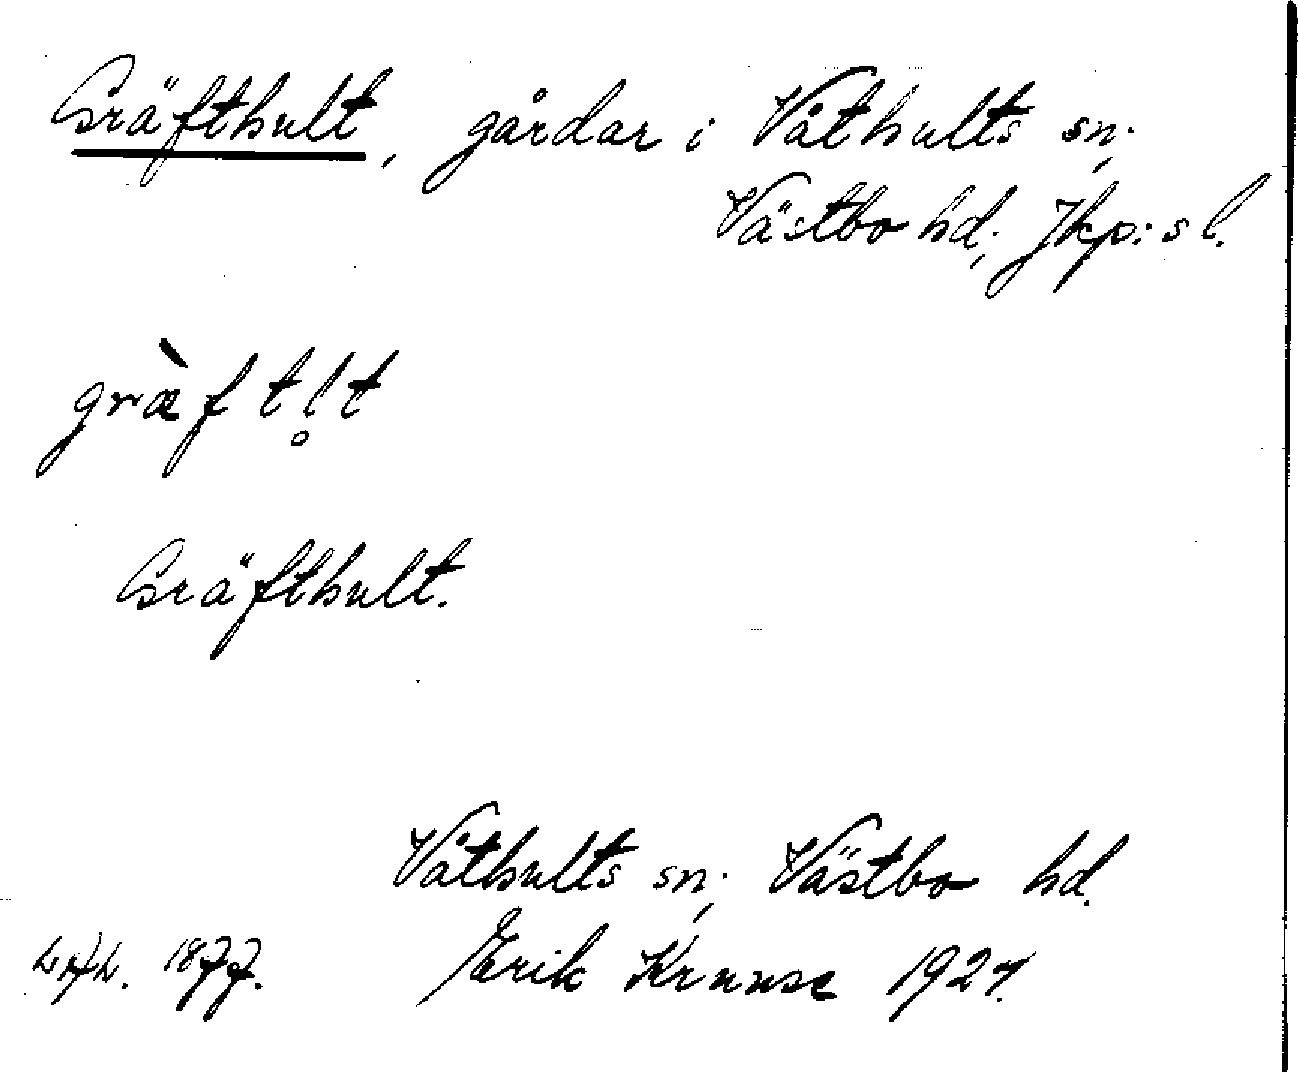 Gräfthult, gårdar i Våthults sn;
Västbo hd; Jkp:s l.
græ̀ftl̥t
Gräfthult.
Våthults sn; Västbo hd.
1877. Erik Kruuse 1927.